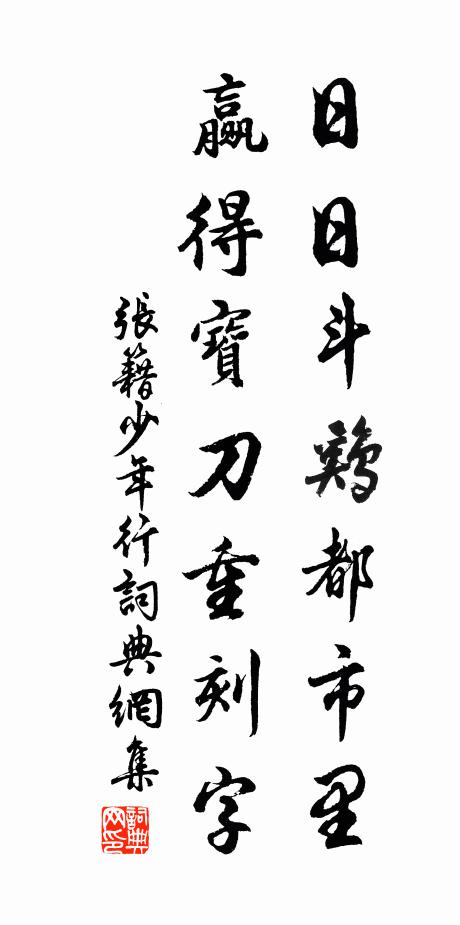 日日斗鷄都市里
贏得寶刀重刻字
張籍少年行詞典網集
詞典网印